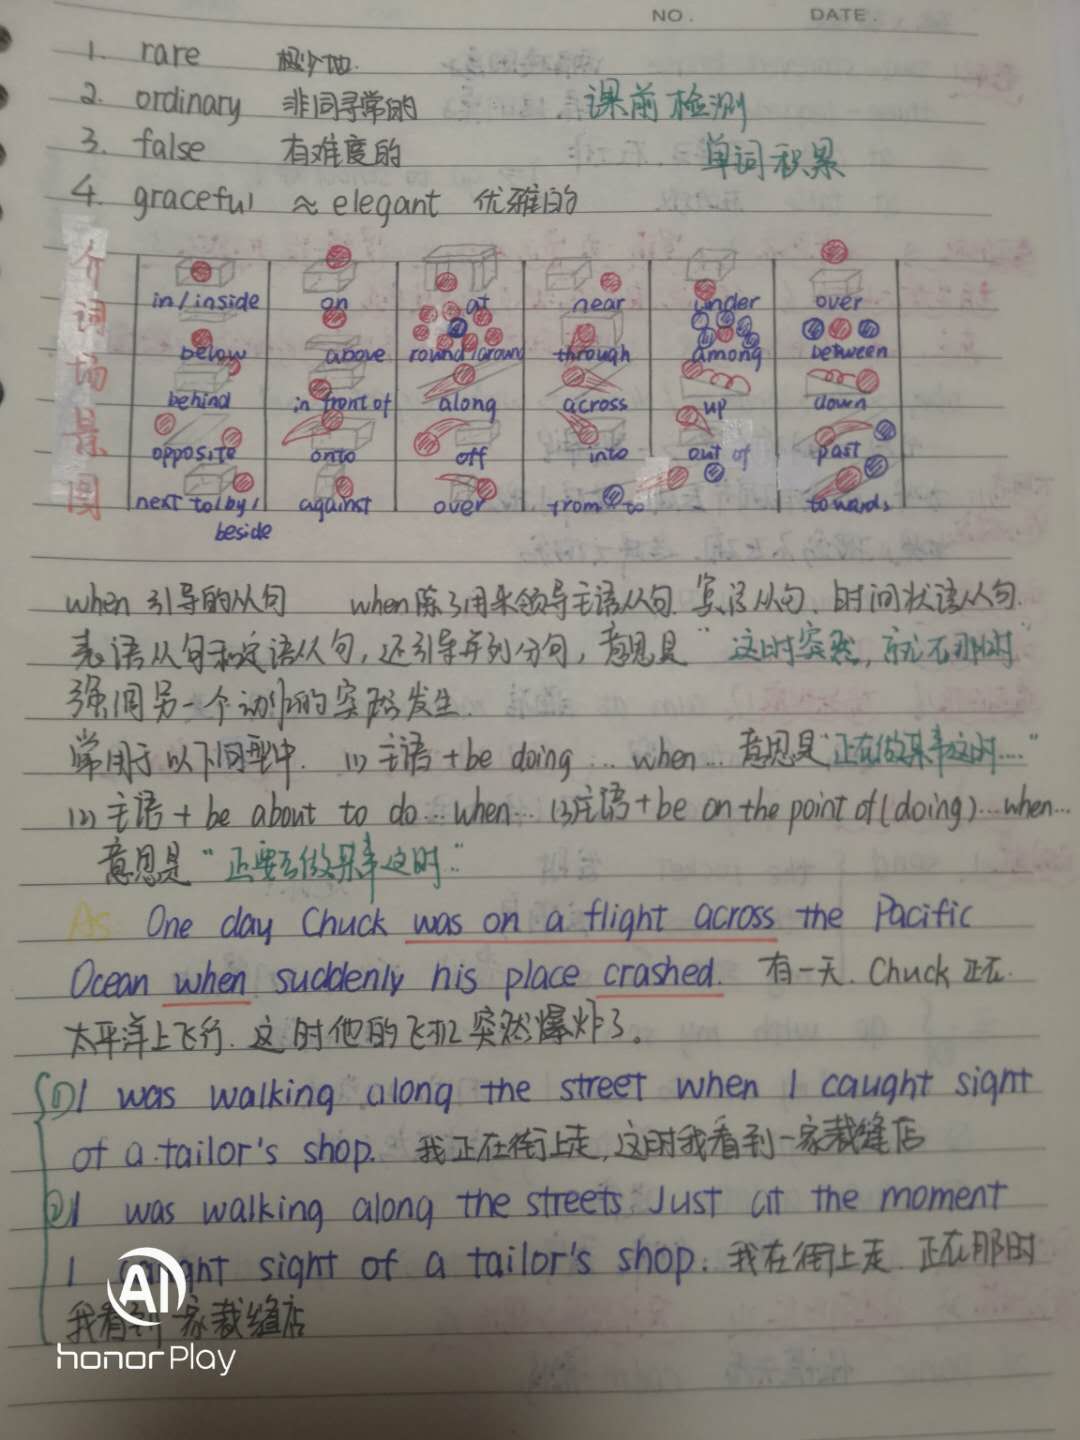 NO. DATE.
1. rare 极少地
2. ordinary 非同寻常的 课前检测
3. false 有难度的 单词积累
4. graceful ≈ elegant 优雅的
介词场景图
in/inside on at near under over
below above round/around through among between
behind in front of along across up down
opposite onto off into out of past
next to/by/ against over from to towards
beside
when 引导的从句 when除了用来领导主语从句、宾语从句、时间状语从句
表语从句和定语从句,还引导并列分句,意思是"这时突然,就在那时"
强调另一个动作的突然发生.
常用于以下句型中. (1) 主语+be doing ... when... 意思是"正在做某事这时...."
(2) 主语 + be about to do... when... (3)主语+be on the point of (doing)...when...
意思是"正要去做某事这时"
As One day Chuck was on a flight across the Pacific
Ocean when suddenly his place crashed. 有一天. Chuck 正在
太平洋上飞行. 这时他的飞机突然爆炸了。
① I was walking along the street when I caught sight
of a tailor's shop. 我正在街上走,这时我看到一家裁缝店
② I was walking along the streets Just at the moment
I caught sight of a tailor's shop. 我在街上走. 正在那时
我看到一家裁缝店
AI
honor Play